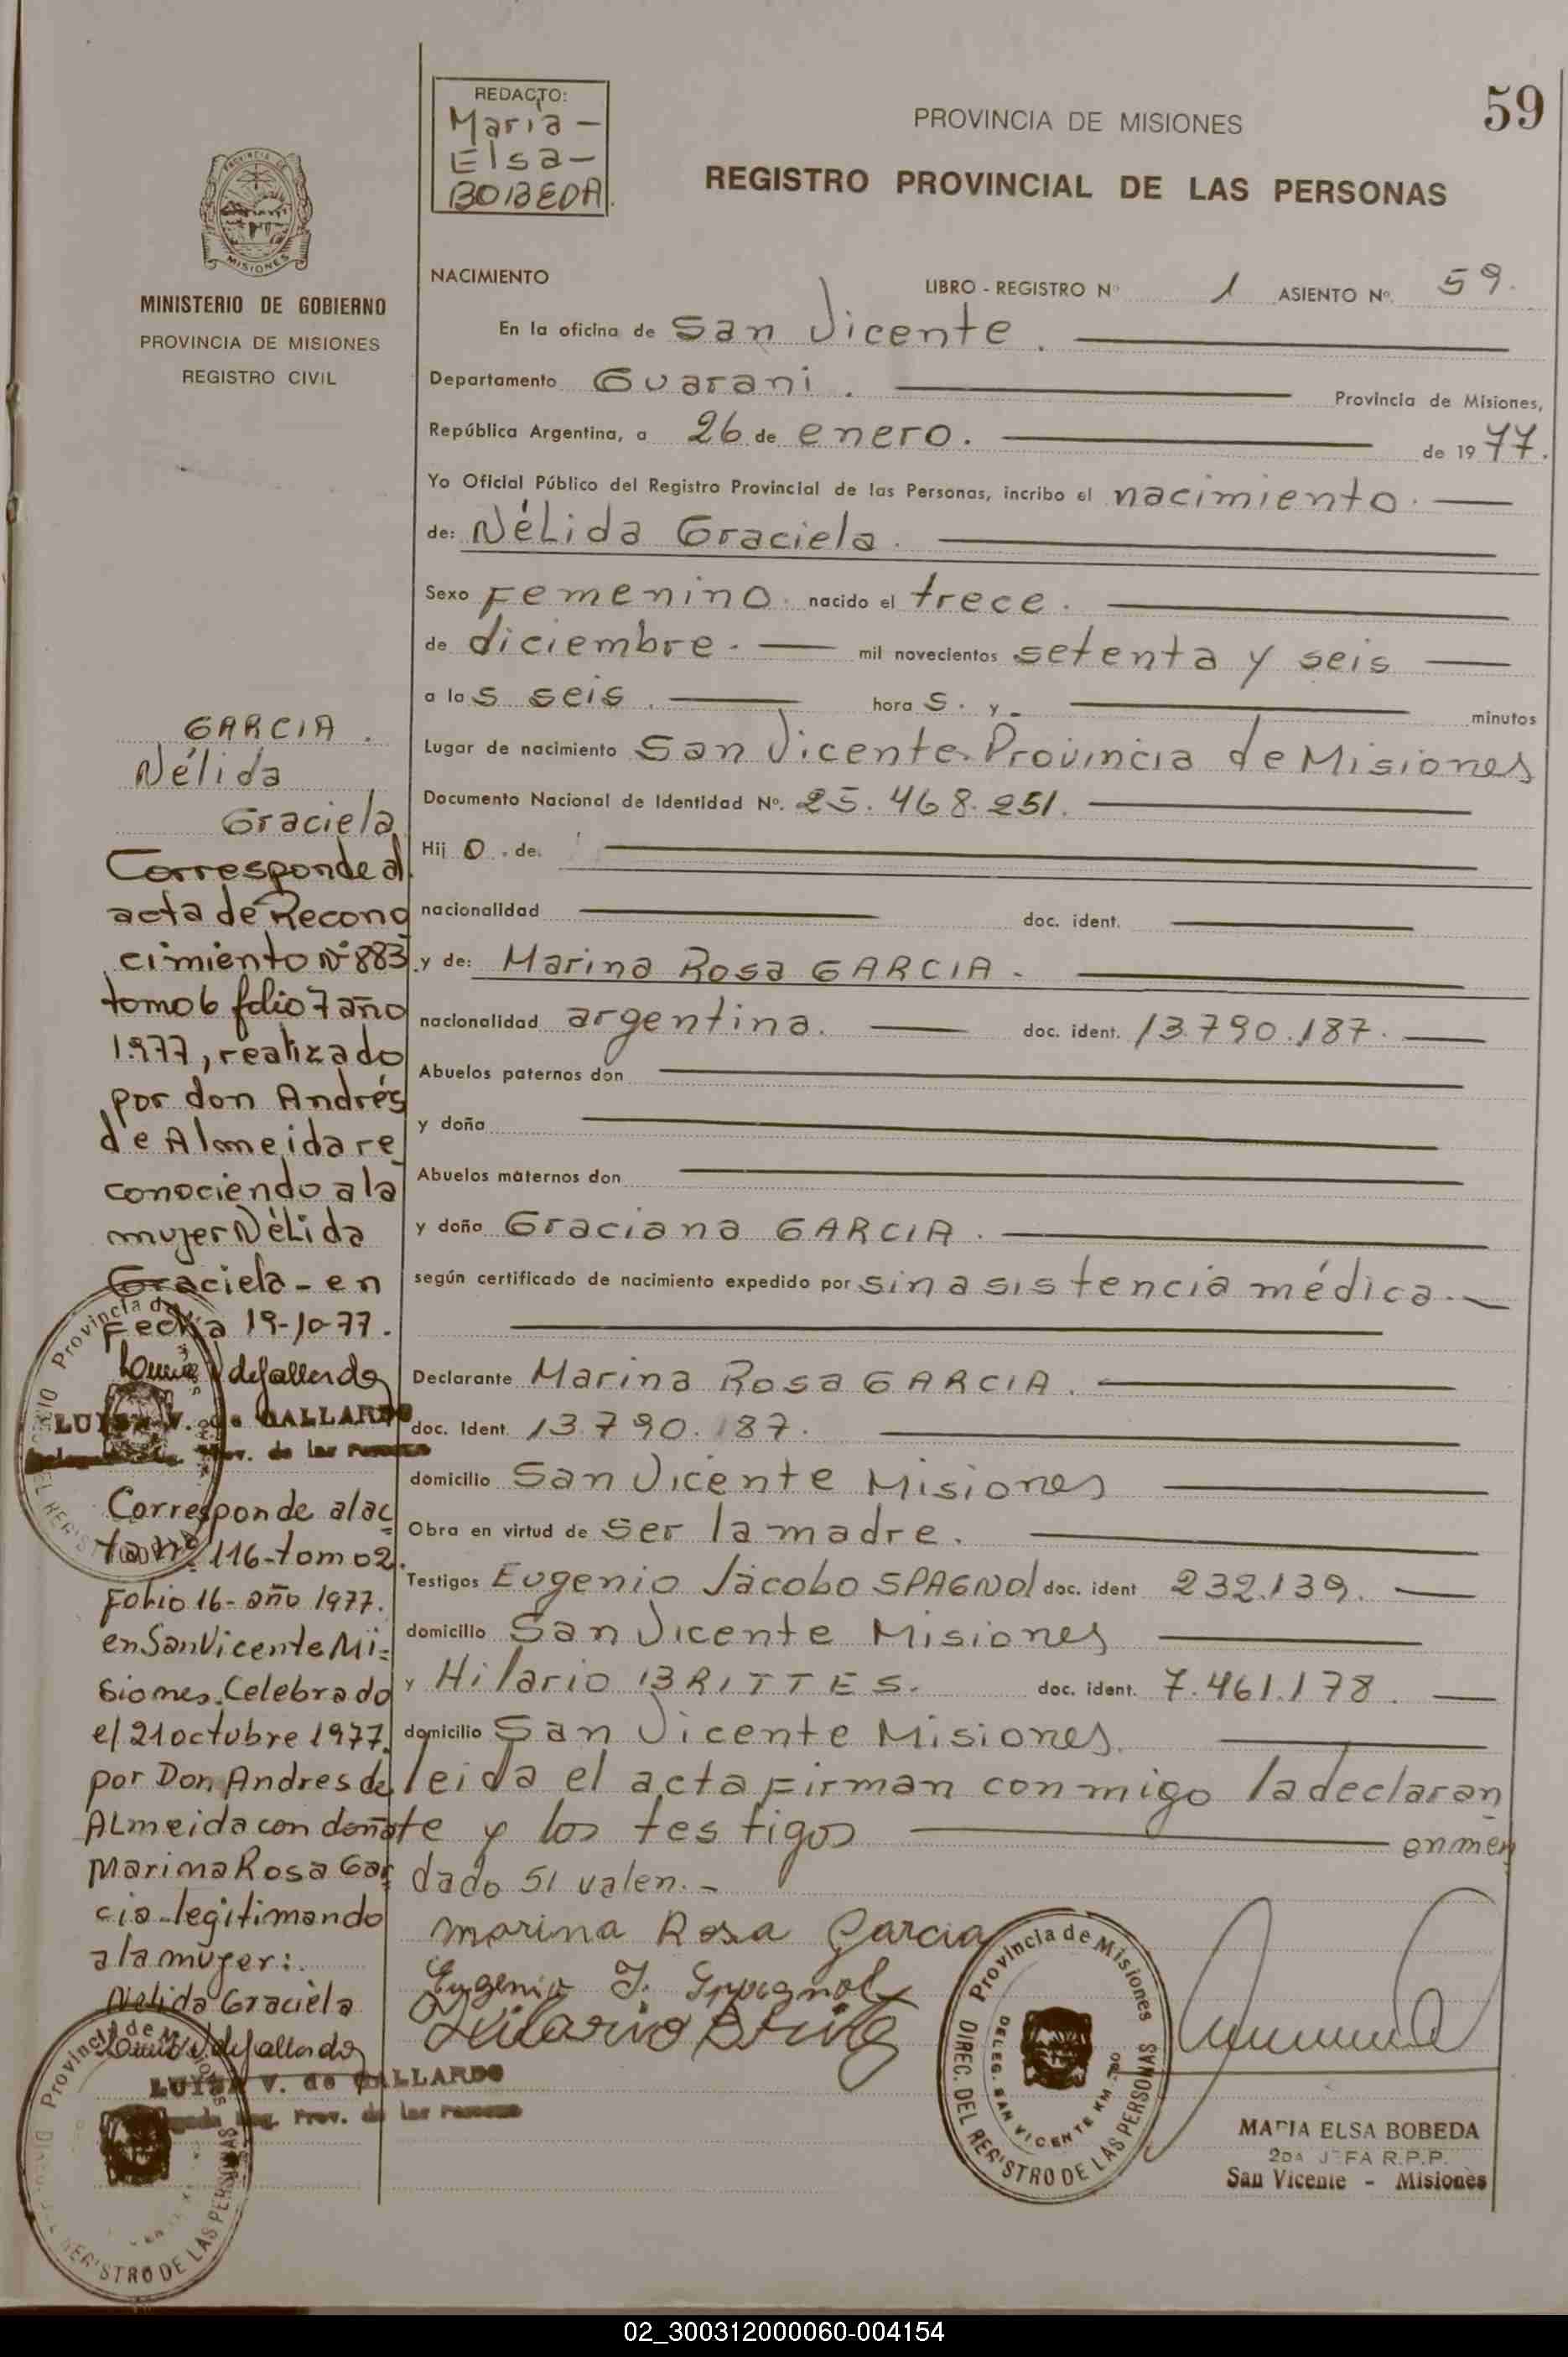 59
REDACTO:
Maria -
Elsa -
BOBEDA.
PROVINCIA DE MISIONES
REGISTRO PROVINCIAL DE LAS PERSONAS
MISIONES
MINISTERIO DE GOBIERNO
PROVINCIA DE MISIONES
REGISTRO CIVIL
NACIMIENTO
LIBRO - REGISTRO Nº 1 ASIENTO Nº. 59.
En la oficina de San Vicente.
Departamento Guarani. Provincia de Misiones,
República Argentina, a 26 de enero. de 1977.
Yo Oficial Público del Registro Provincial de las Personas, incribo el nacimiento.
de: Nélida Graciela.
Sexo Femenino. nacido el trece.
de diciembre. - mil novecientos setenta y seis
a las seis. horas. y - minutos
Lugar de nacimiento San Vicente. Provincia de Misiones
Documento Nacional de Identidad Nº. 25.468.251.
Hijo. de:
nacionalidad doc. ident.
y de: Marina Rosa GARCIA.
nacionalidad argentina. doc. ident. 13.790.187.
Abuelos paternos don
y doña
Abuelos maternos don
y doña Graciana GARCIA.
según certificado de nacimiento expedido por sin asistencia médica.
Declarante Marina Rosa GARCIA.
doc. Ident. 13.790.187.
domicilio San Vicente Misiones
Obra en virtud de ser la madre.
Testigos Eugenio Jacobo SPAGNOl doc. ident 232.139.
domicilio San Vicente Misiones
y Hilario BRITTES. doc. ident. 7.461.178.
domicilio San Vicente Misiones.
leida el acta Firman conmigo la declaran
te y los testigos enmen
dado 51 valen. -
Marina Rosa Garcia
Eugenio J. Spagnol
Hilario Brites
GARCIA.
Nélida
Graciela
Corresponde al
acta de Recono
cimiento Nº 883
tomo 6 folio 7 año
1.977, realizado
por don Andrés
de Almeida re
conociendo a la
mujer Nélida
Graciela - en
Fecha 19-10-77.
Luisa V. de Gallardo
LUISA V. de GALLARDO
Prov. de las Personas
Corresponde al ac
ta nº 116 - tomo 2.
Folio 16 - año 1977.
en San Vicente Mi=
siones. Celebrado
el 21 octubre 1977.
por Don Andres de
ALmeida con doña
Marina Rosa Gar
cia - legitimando
a la mujer:.
Nelida Graciela
Luisa V. de Gallardo
LUISA V. de GALLARDO
Reg. Prov. de las Personas
Provincia de Misiones
DIREC. DEL REGISTRO DE LAS PERSONAS
DELEG. SAN VICENTE KM.
MARIA ELSA BOBEDA
2DA JEFA R.P.P.
San Vicente - Misiones
02_300312000060-004154